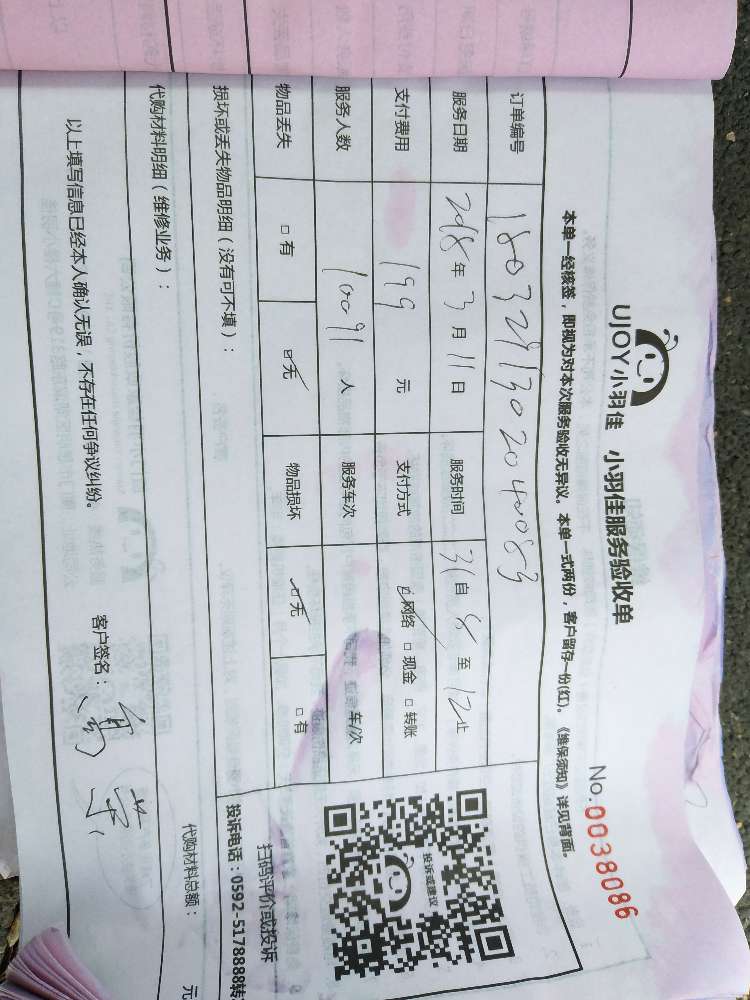 UJOY小羽佳 小羽佳服务验收单
No.0038086
本单一经核签，即视为对本次服务验收无异议。本单一式两份，客户留存一份(红)。《维保须知》详见背面。
订单编号
服务日期 2018年3月11日 服务时间 自8至12止
支付费用 199元 支付方式 网络 □现金 □转账
服务人数 10091人 服务车次 车/次
物品丢失 □有 无 物品损坏 无 □有
损坏或丢失物品明细（没有可不填）：
投诉或建议
扫码评价或投诉
投诉电话：0592-5178888转
代购材料明细（维修业务）：
代购材料总额： 元
以上填写信息已经本人确认无误，不存在任何争议纠纷。
客户签名：